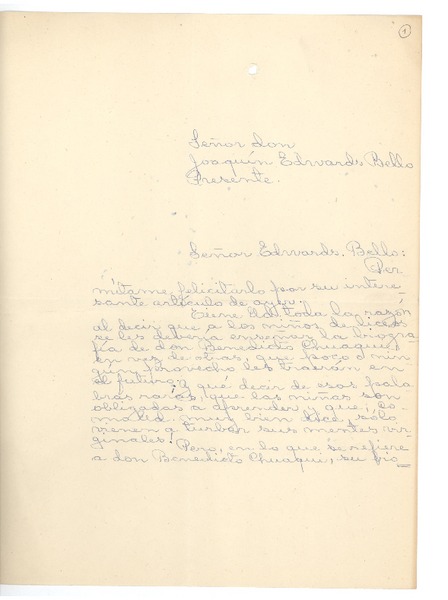 1
Señor don
Joaquín Edwards Bello
Presente.
Señor Edwards. Bello:
Per
mítame felicitarlo por su intere
sante artículo de ayer.
Tiene Ud. toda la razón
al decir que a los niños de liceos
se les debería enseñar la biogra
fía de don Benedicto Chuaqui,
en vez de otras, que poco o nin
gún provecho les traerán en
el futuro; y qué decir de esas pala
bras raras, que las niñas son
obligadas a aprender y que, co
mo Ud. muy bien dice, sólo
vienen a turbar sus mentes vir
ginales!
Pero, en lo que se refiere
a don Benedicto Chuaqui, su